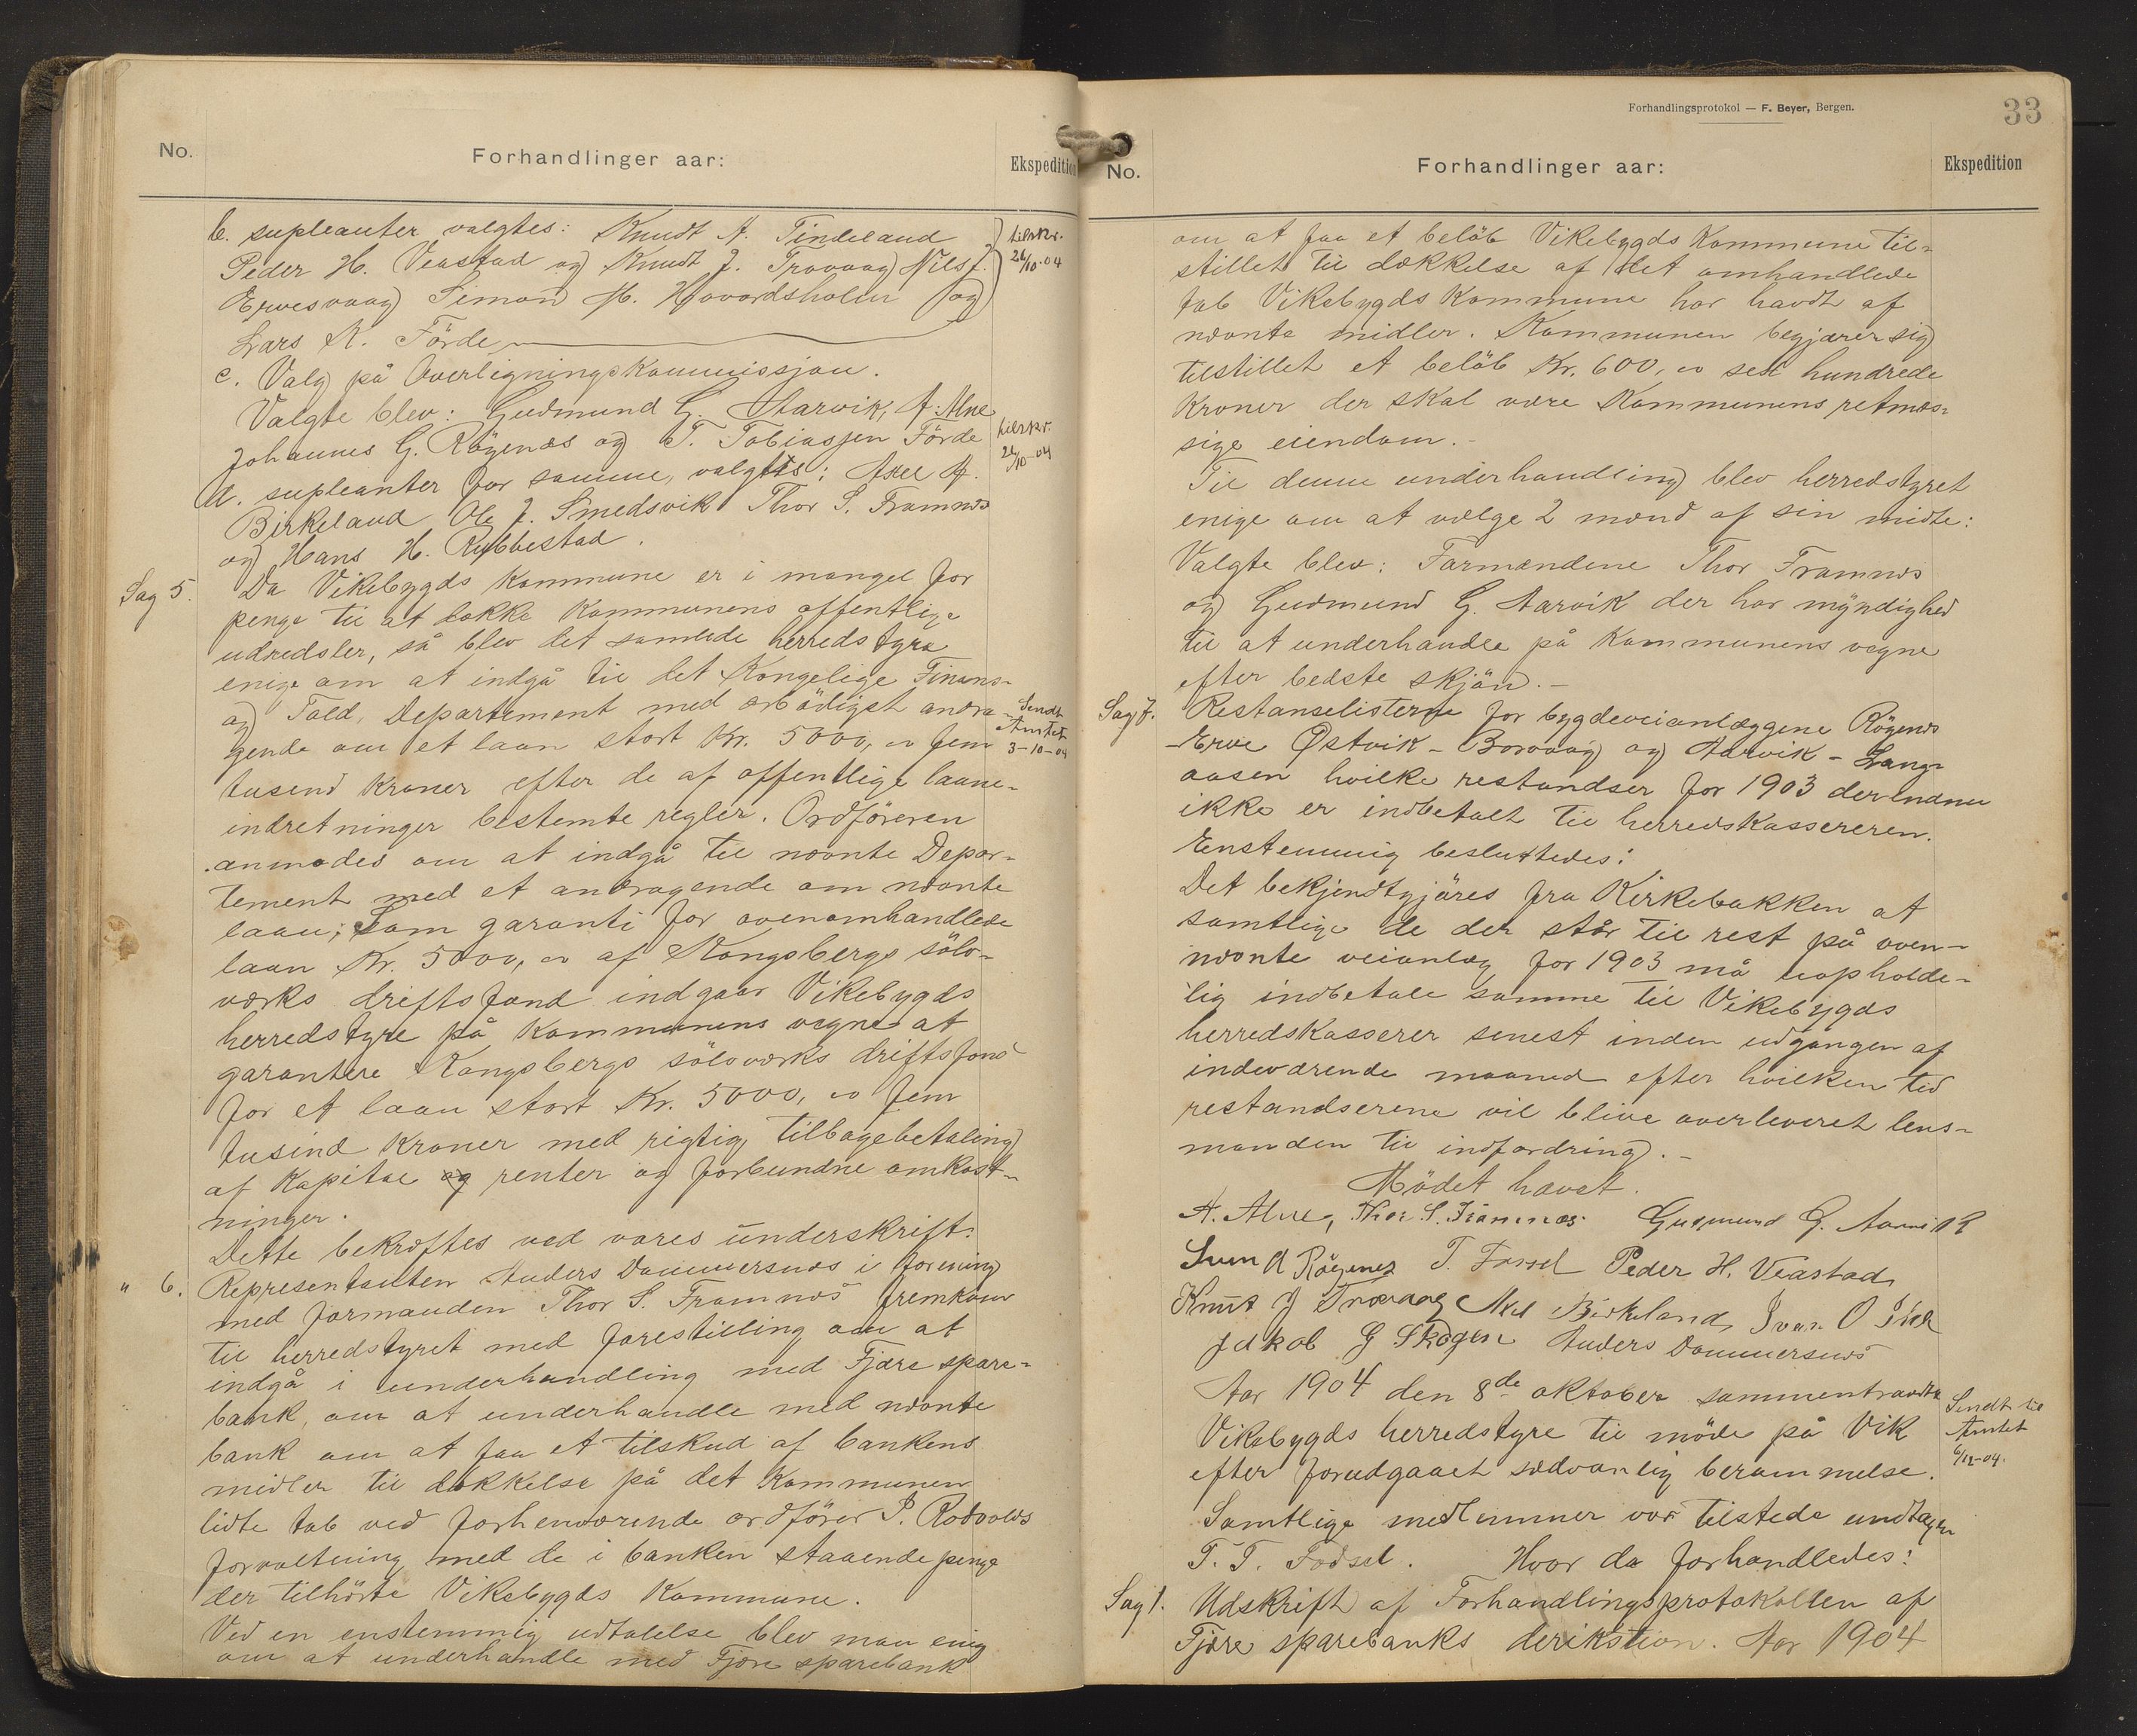 No.
Forhandlinger aar:
Ekspedition
b. supleanter valgtes: Knudt A. Tindeland
Peder H. Veastad og Knudt J. Trovaag Nils J.
Ervesvaag Simon M. Hovordsholm og
Lars K. Förde
tilskr.
26/10-04
c. Valg på Overligningskommissjon.
Valgte blev: Gudmund G. Aarvik, A. Alne
Johannes G. Rögenæs og T. Tobiassen Förde
tilskr.
26/10-04
d. supleanter for samme, valgtes: Axel A.
Birkeland Ole J. Smedsvik Thor S. Framnæs
og Hans H. Rybbestad.
Sag 5.
Da Vikebygds Kommune er i mangel for
penge til at dække Kommunens offentlige
udredsler, så blev det samlede herredstyre
enige om at indgå til det Kongelige Finans-
og Told, Departement med ærbödigst andra-
gende om et laan stort Kr. 5000, er fem
Sendt
Amtet
3-10-04
tusend kroner efter de af offentlige laane-
indretninger bestemte regler. Ordföreren
anmodes om at indgå til nævnte Depar-
tement med et andragende om nævnte
laan; Som garanti for ovenomhandlede
laan Kr. 5000, er af Kongsbergs sölv-
værks driftsfond indgaar Vikebygds
herredstyre på Kommunens vegne at
garantere Kongsbergs sölvværks driftsfond
for et laan stort Kr. 5000, er fem
tusind kroner med rigtig tilbagebetaling
af Kapital og renter og forbundne omkost-
ninger.
Dette bekræftes ved vores underskrift.
" 6.
Representanten Anders Dommersnæs i forening
med formanden Thor S. Framnæs fremkom
til herredstyret med forestilling om at
indgå i underhandling med Fjære spare-
bank, om at underhandle med nævnte
bank om at faa et tilskud af bankens
midler til dækkelse på det Kommunen
lidte tab ved forhenværende ordförer P. Rødvolds
forvaltning med de i banken staaende penge
der tilhörte Vikebygds Kommune.
Ved en enstemmig udtalelse blev man enig
om at underhandle med Fjære sparebank
Forhandlingsprotokol — F. Beyer, Bergen.
33
No.
Forhandlinger aar:
Ekspedition
om at faa et belöb Vikebygds Kommune til-
stillet til dækkelse af det omhandlede
tab Vikebygds Kommune har havdt af
nævnte midler. Kommunen begjærer sig
tilstillet et belöb Kr. 600, er sex hundrede
Kroner der skal være Kommunens retmæs-
sige eiendom.-
Til denne underhandling blev herredstyret
enige om at vælge 2 mænd af sin midte:
Valgte blev: Formændene Thor Framnæs
og Gudmund G. Aarvik der har myndighed
til at underhandle på Kommunens vegne
efter bedste skjön.-
Sag 7.
Restanselisterne for bygdeveianlæggene Rögenæs
-Erve Østvik - Borovaag og Aarvik - Lang-
aasen hvilke restandser for 1903 der endnu
ikke er indbetalt til herredskassereren.
Enstemmig besluttedes:
Det bekjendtgjöres fra Kirkebakken at
samtlige de der står til rest på oven-
nævnte veianlæg for 1903 må uopholde-
lig indbetale samme til Vikebygds
herredskasserer senest inden udgangen af
indeværende maaned efter hvilken tid
restandserene vil blive overleveret lens-
manden til indfordring.-
Mödet hævet.
A. Alne, Thor S. Framnæs Gudmund G. Aarvik
Svend A Rögenes T. Fossel Peder H. Veastad
Knut J Trovaag Axel Birkeland, Ivar O
Jakob G Skogen Anders Dommersnæs
Aar 1904 den 8de oktober sammentraadte
Vikebygds herredstyre til möde på Vik
efter forudgaaet sædvanlig berammelse.
Sendt til
Amtet
6/12-04.
Samtlige medlemmer var tilstede undtagen
T. T. Fosssel. Hvor da forhandledes:
Sag 1.
Udskrift af Forhandlingsprotokollen af
Fjære sparebanks derikstion. Aar 1904